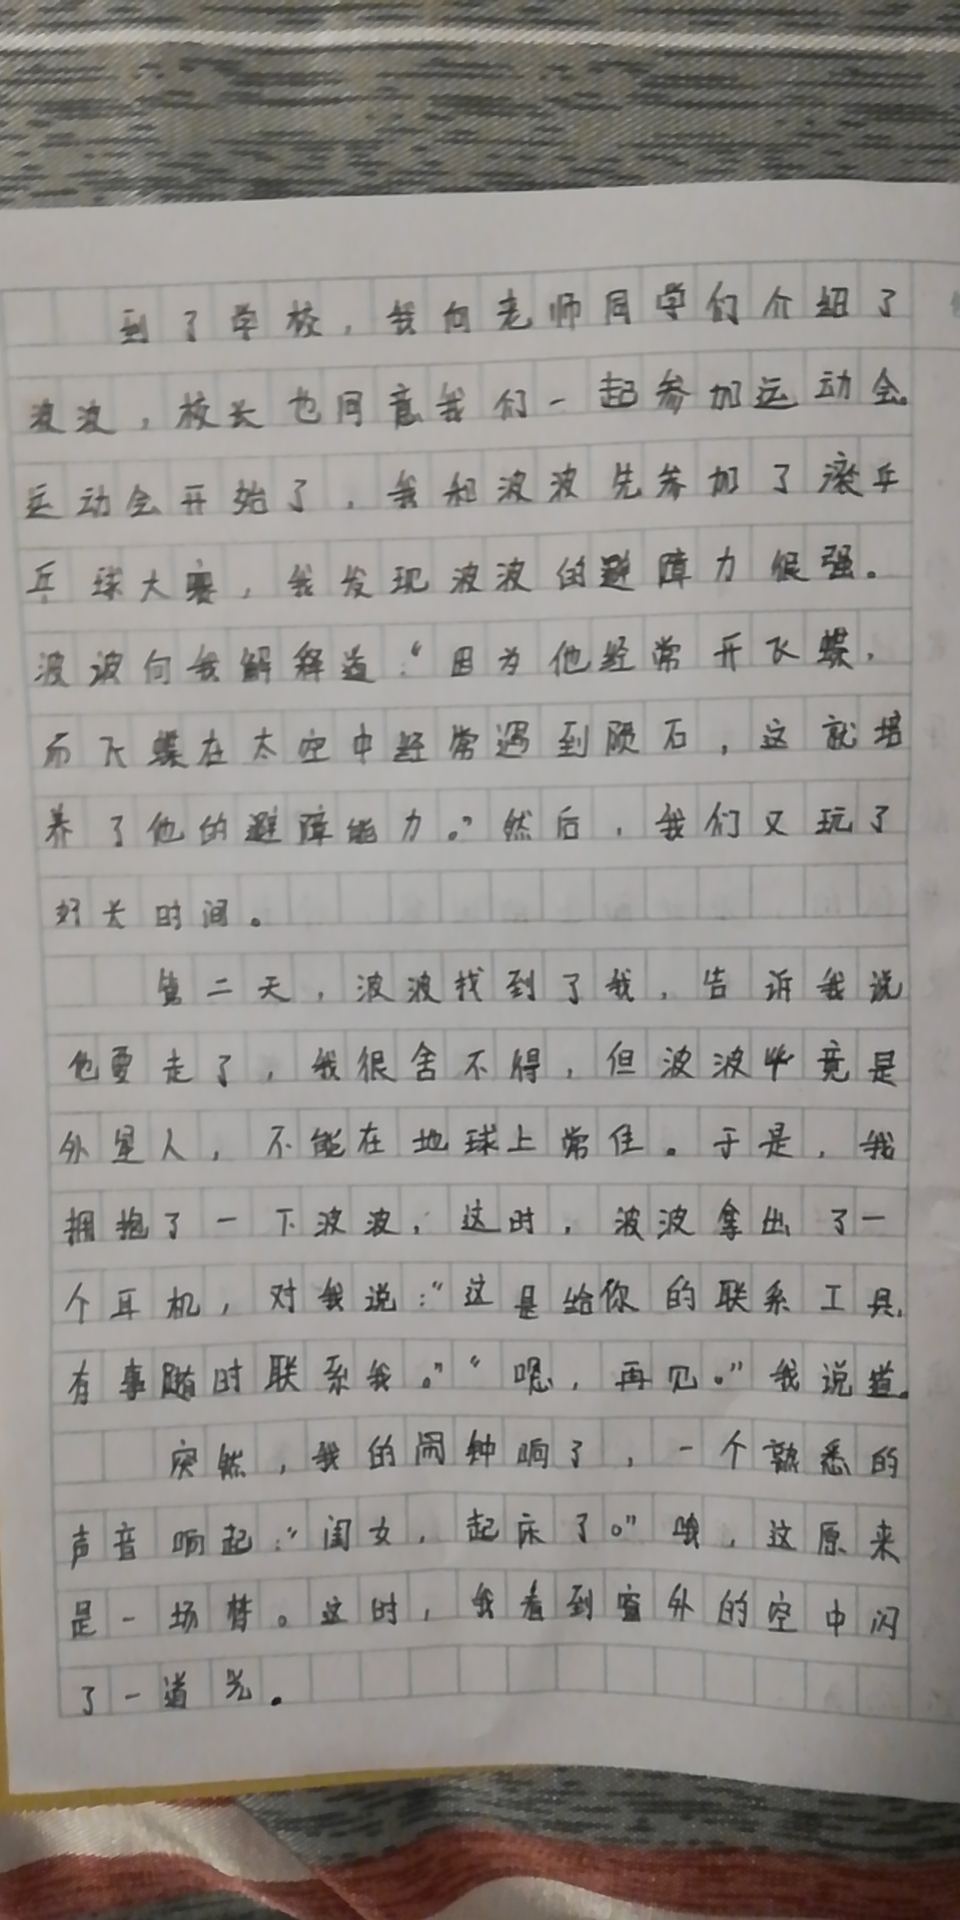 到了学校，我向老师同学们介绍了
波波，校长也同意我们一起参加运动会。
运动会开始了，我和波波先参加了滚乒
乓球大赛，我发现波波的避障力很强。
波波向我解释道：“因为他经常开飞蝶，
而飞蝶在太空中经常遇到陨石，这就培
养了他的避障能力。”然后，我们又玩了
好长时间。
第二天，波波找到了我，告诉我说
他要走了，我很舍不得，但波波毕竟是
外星人，不能在地球上常住。于是，我
拥抱了一下波波，这时，波波拿出了一
个耳机，对我说：“这是给你的联系工具，
有事随时联系我。”“嗯，再见。”我说道。
突然，我的闹钟响了，一个熟悉的
声音响起：“闺女，起床了。”哦，这原来
是一场梦。这时，我看到窗外的空中闪
了一道光。